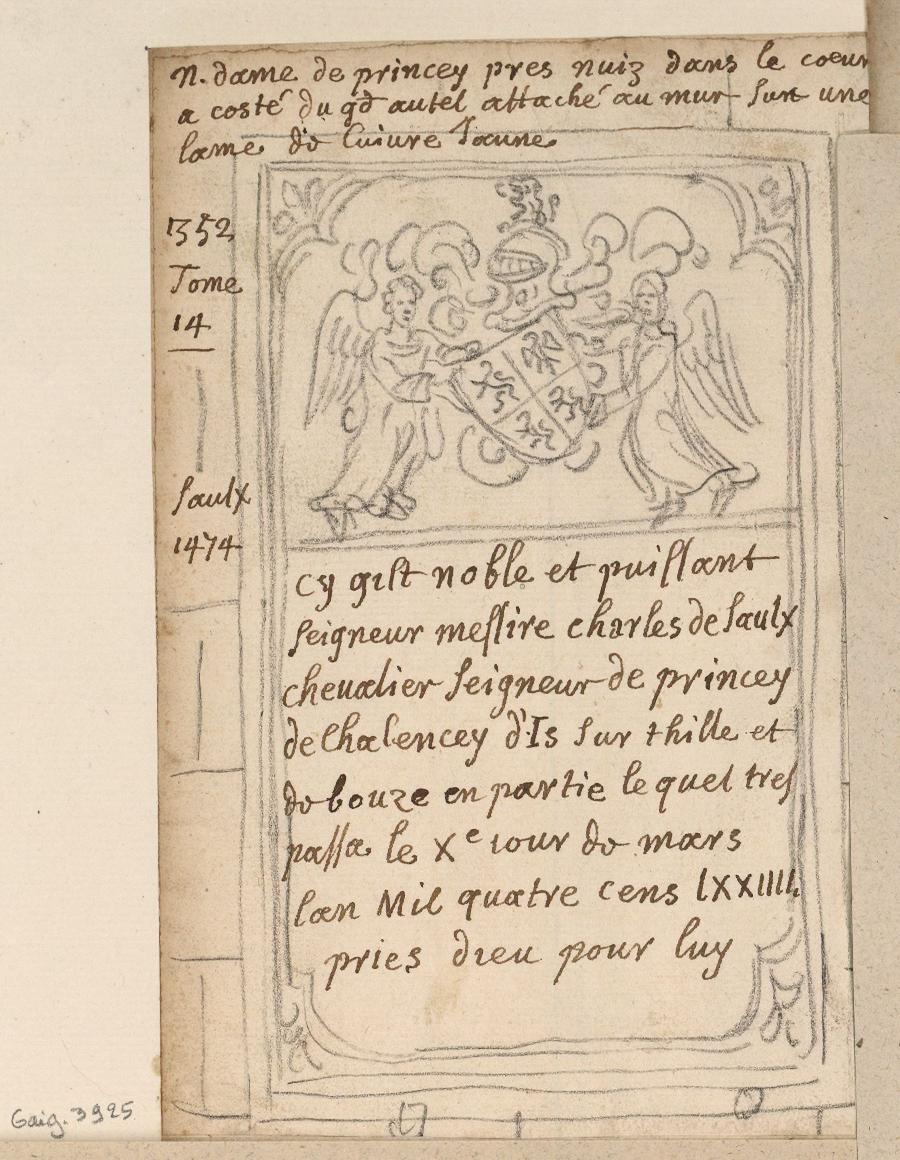 n. dame de princey pres nuiz dans le coeur
a costé du gd autel attaché au mur sur une
lame de Cuiure Jaune
352
Tome
14
saulx
1474
cy gist noble et puissant
seigneur messire charles de saulx
cheualier seigneur de princey
de Chalencey d'Is sur thille et
de bouze en partie le quel tres
passa le Xe iour de mars
lan Mil quatre cens lxxiiii.
pries dieu pour luy
Gaig. 3925